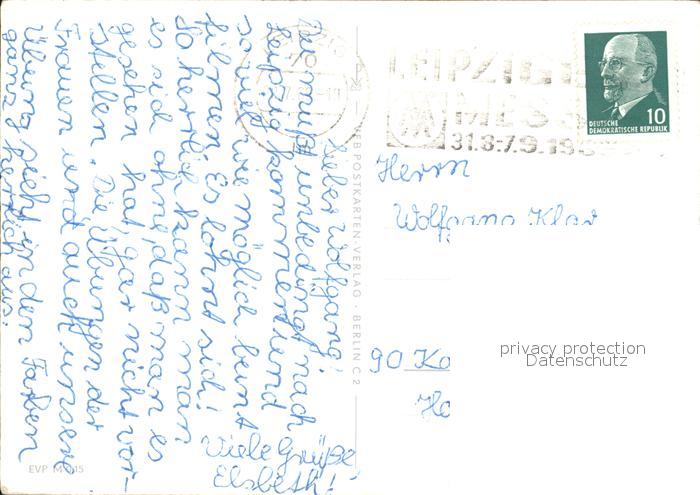 Lieber Wolfgang!
Du mußt unbedingt nach
Leipzig kommen und
so viel wie möglich bunt
filmen. Es lohnt sich!
So herrlich kann man
es sich ohne, daß man es
gesehen hat, gar nicht vor-
stellen. Die Übungen der
Frauen und auch unsere
Übung sieht in den Farben
ganz herrlich aus.
Viele Grüße
Elsbeth!
EVP M 0,15
VEB POSTKARTEN-VERLAG · BERLIN C 2
LEIPZIGER
MESSE
31.8.-7.9.19
DEUTSCHE
DEMOKRATISCHE REPUBLIK
10
Herrn
Wolfgang
90 Ka
privacy protection
Datenschutz